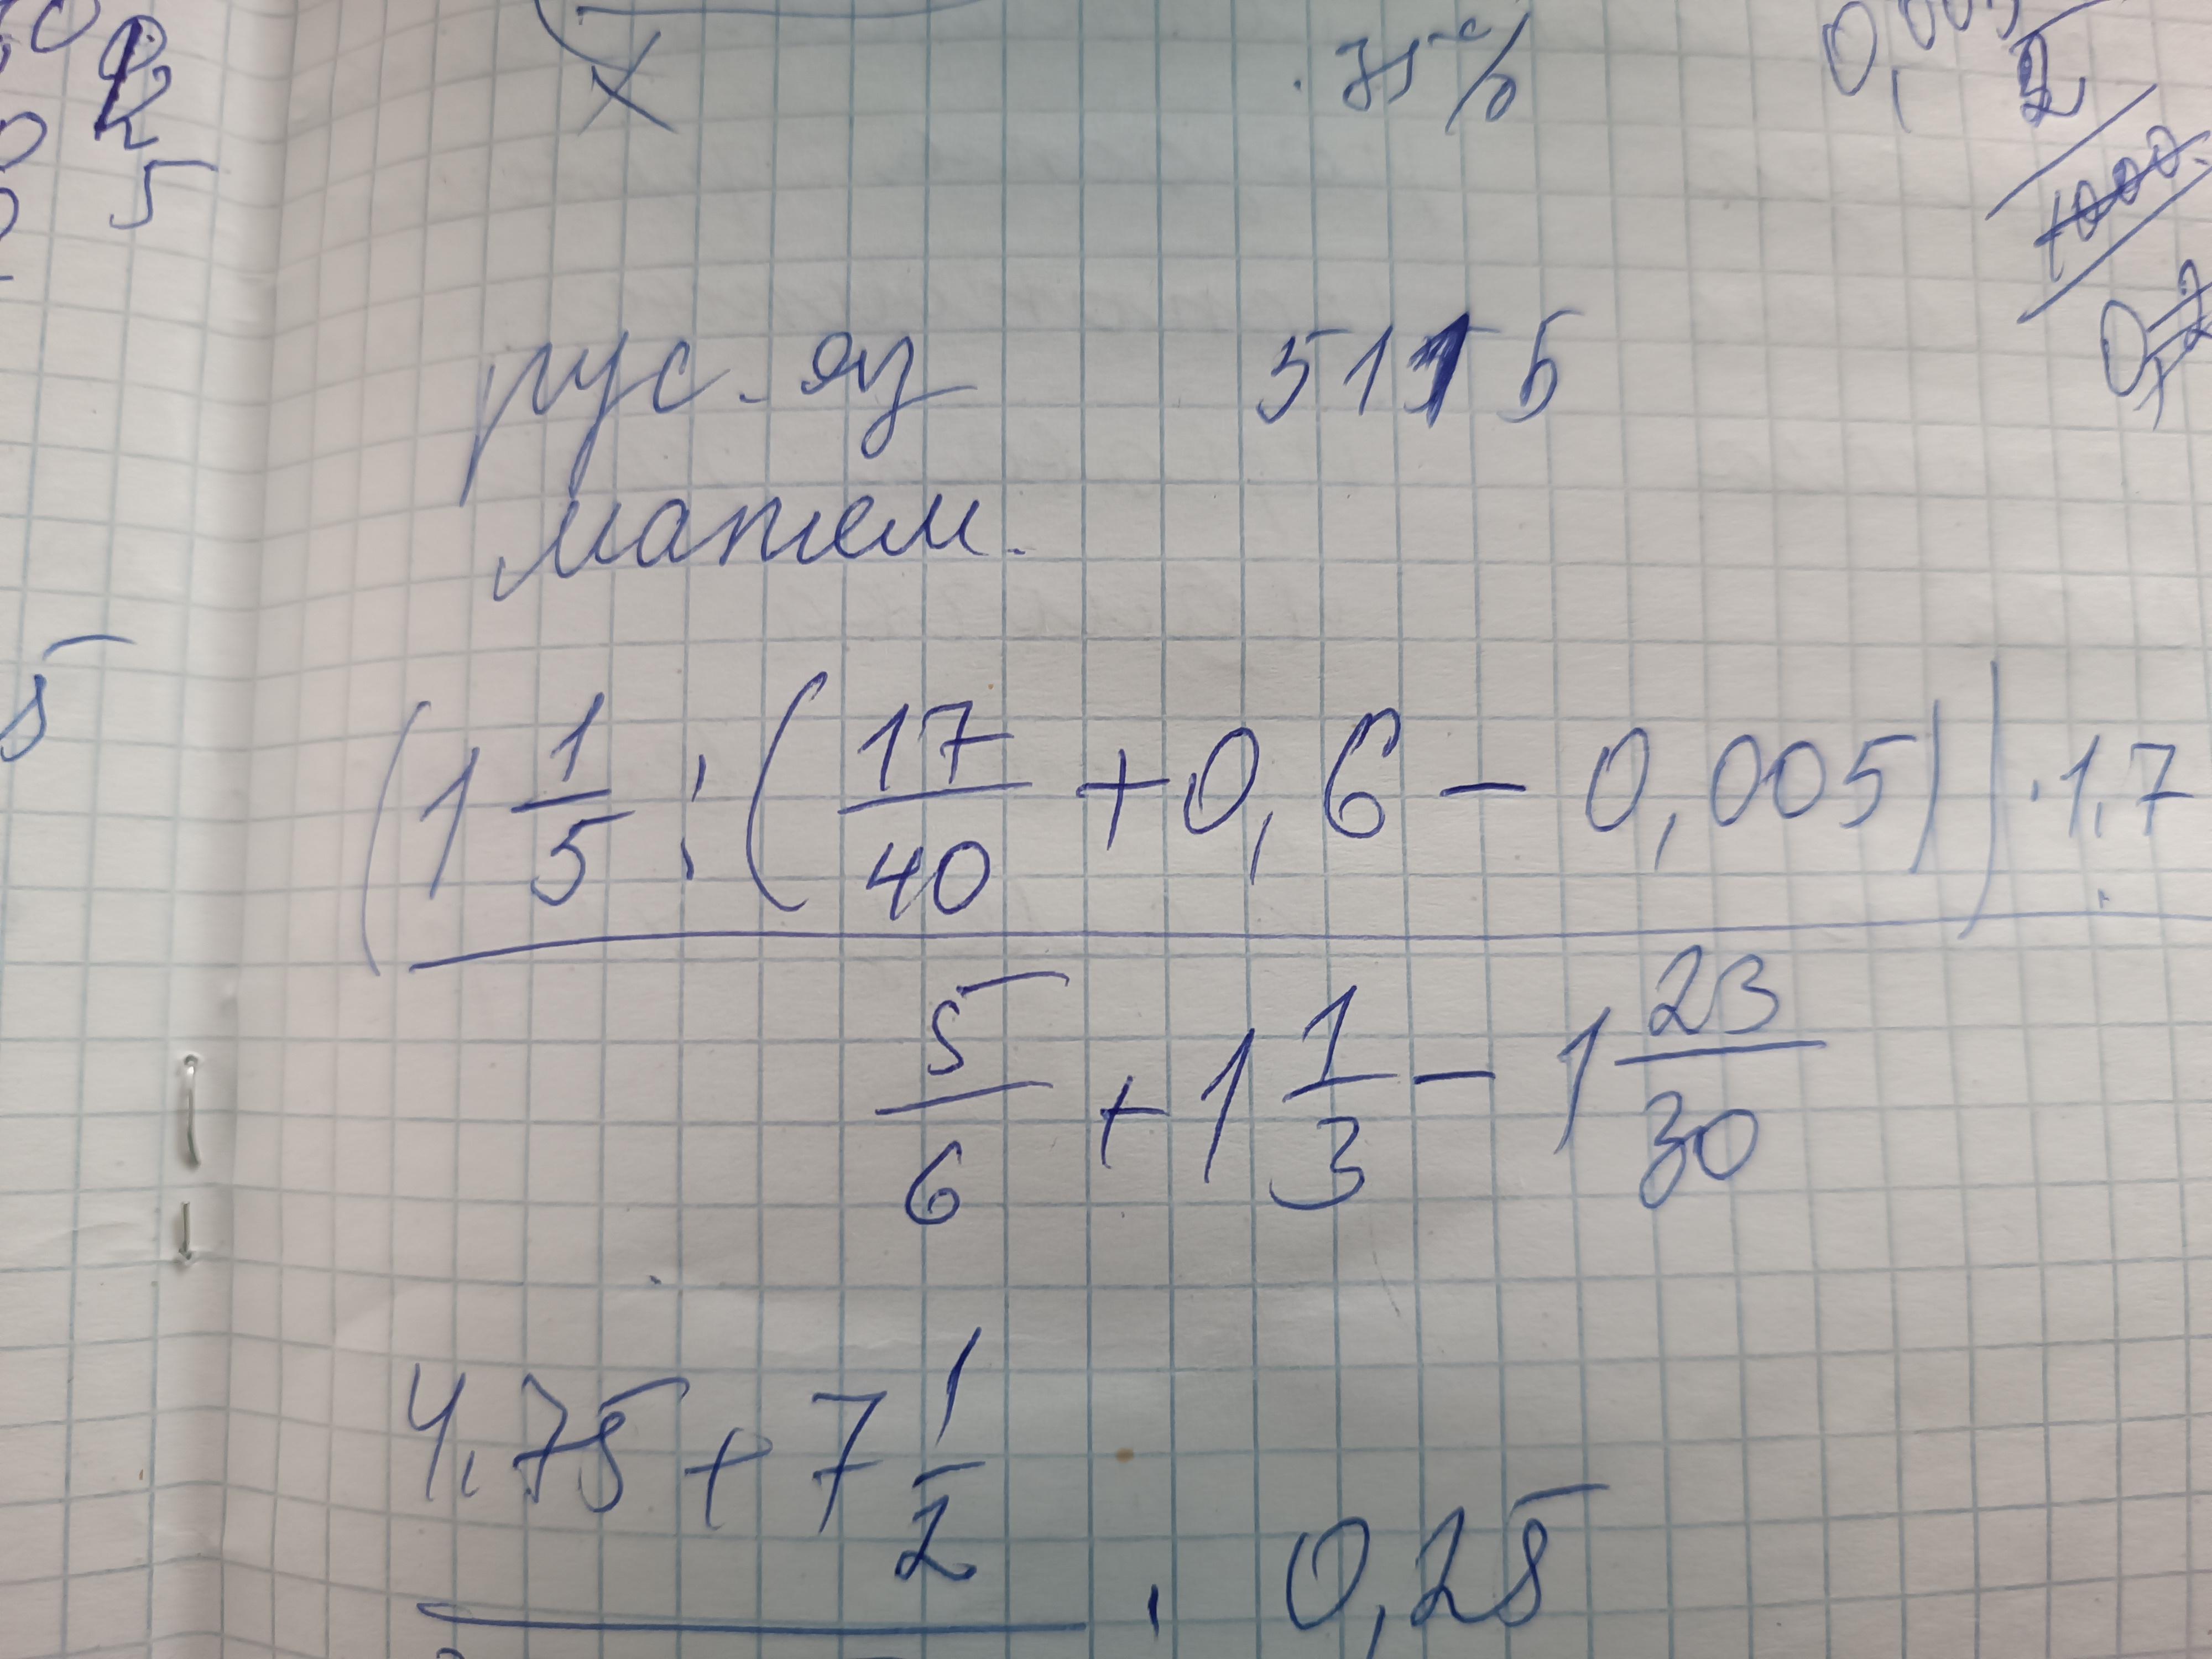 75%
0,005
2
1000
5
рус. яз 5115
матем.
5
(1 1/5 : (17/40 + 0,6 - 0,005)) · 1,7
5/6 + 1 1/3 - 1 23/30
4,75 + 7 1/2
· 0,25